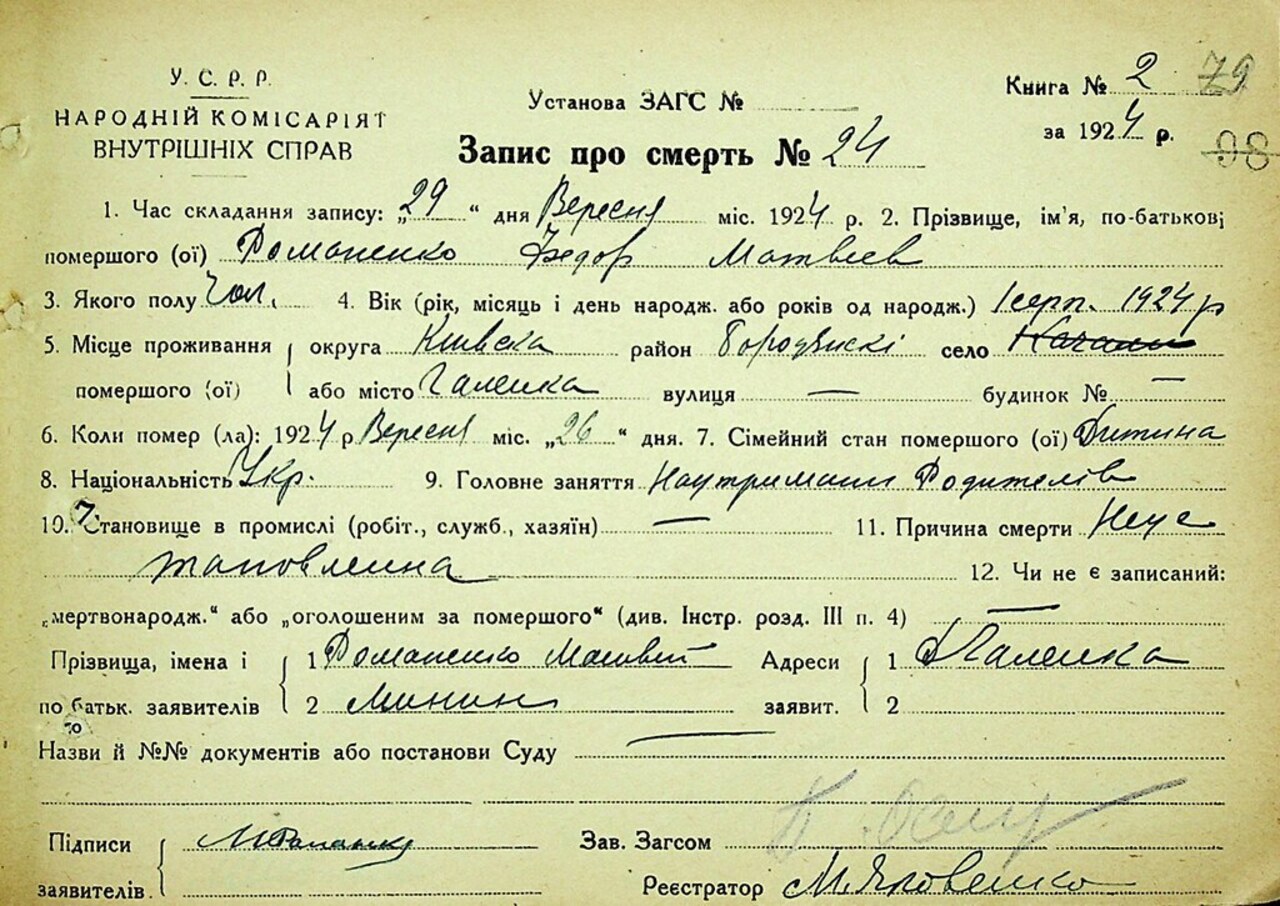 У. С. Р. Р.
НАРОДНІЙ КОМІСАРІЯТ
ВНУТРІШНІХ СПРАВ
Установа ЗАГС №
Книга № 2 79
за 1924 р.
98
Запис про смерть № 24
1. Час складання запису: „29“ дня Вересня міс. 1924 р. 2. Прізвище, ім'я, по-батькові
помершого (ої) Романенко Федор Матвеев
3. Якого полу Чол. 4. Вік (рік, місяць і день народж. або років од народж.) 1 серп. 1924 р
5. Місце проживання округа Київска район Бородянскі село
помершого (ої) або місто Галенка вулиця — будинок № —
6. Коли помер (ла): 1924 р Вересня міс. „26“ дня. 7. Сімейний стан помершого (ої) Дитина
8. Національність Укр. 9. Головне заняття Наутримани Родителів
10. Становище в промислі (робіт., служб., хазяїн) — 11. Причина смерти Неус
тановлина 12. Чи не є записаний:
„мертвонародж.“ або „оголошеним за помершого“ (див. Інстр. розд. III п. 4) —
Прізвища, імена і 1 Романенко Матвей Адреси 1
по батьк. заявителів 2 Минин заявит. 2
Назви й №№ документів або постанови Суду —
Підписи Зав. Загсом
заявителів. Реєстратор М. Яковенко